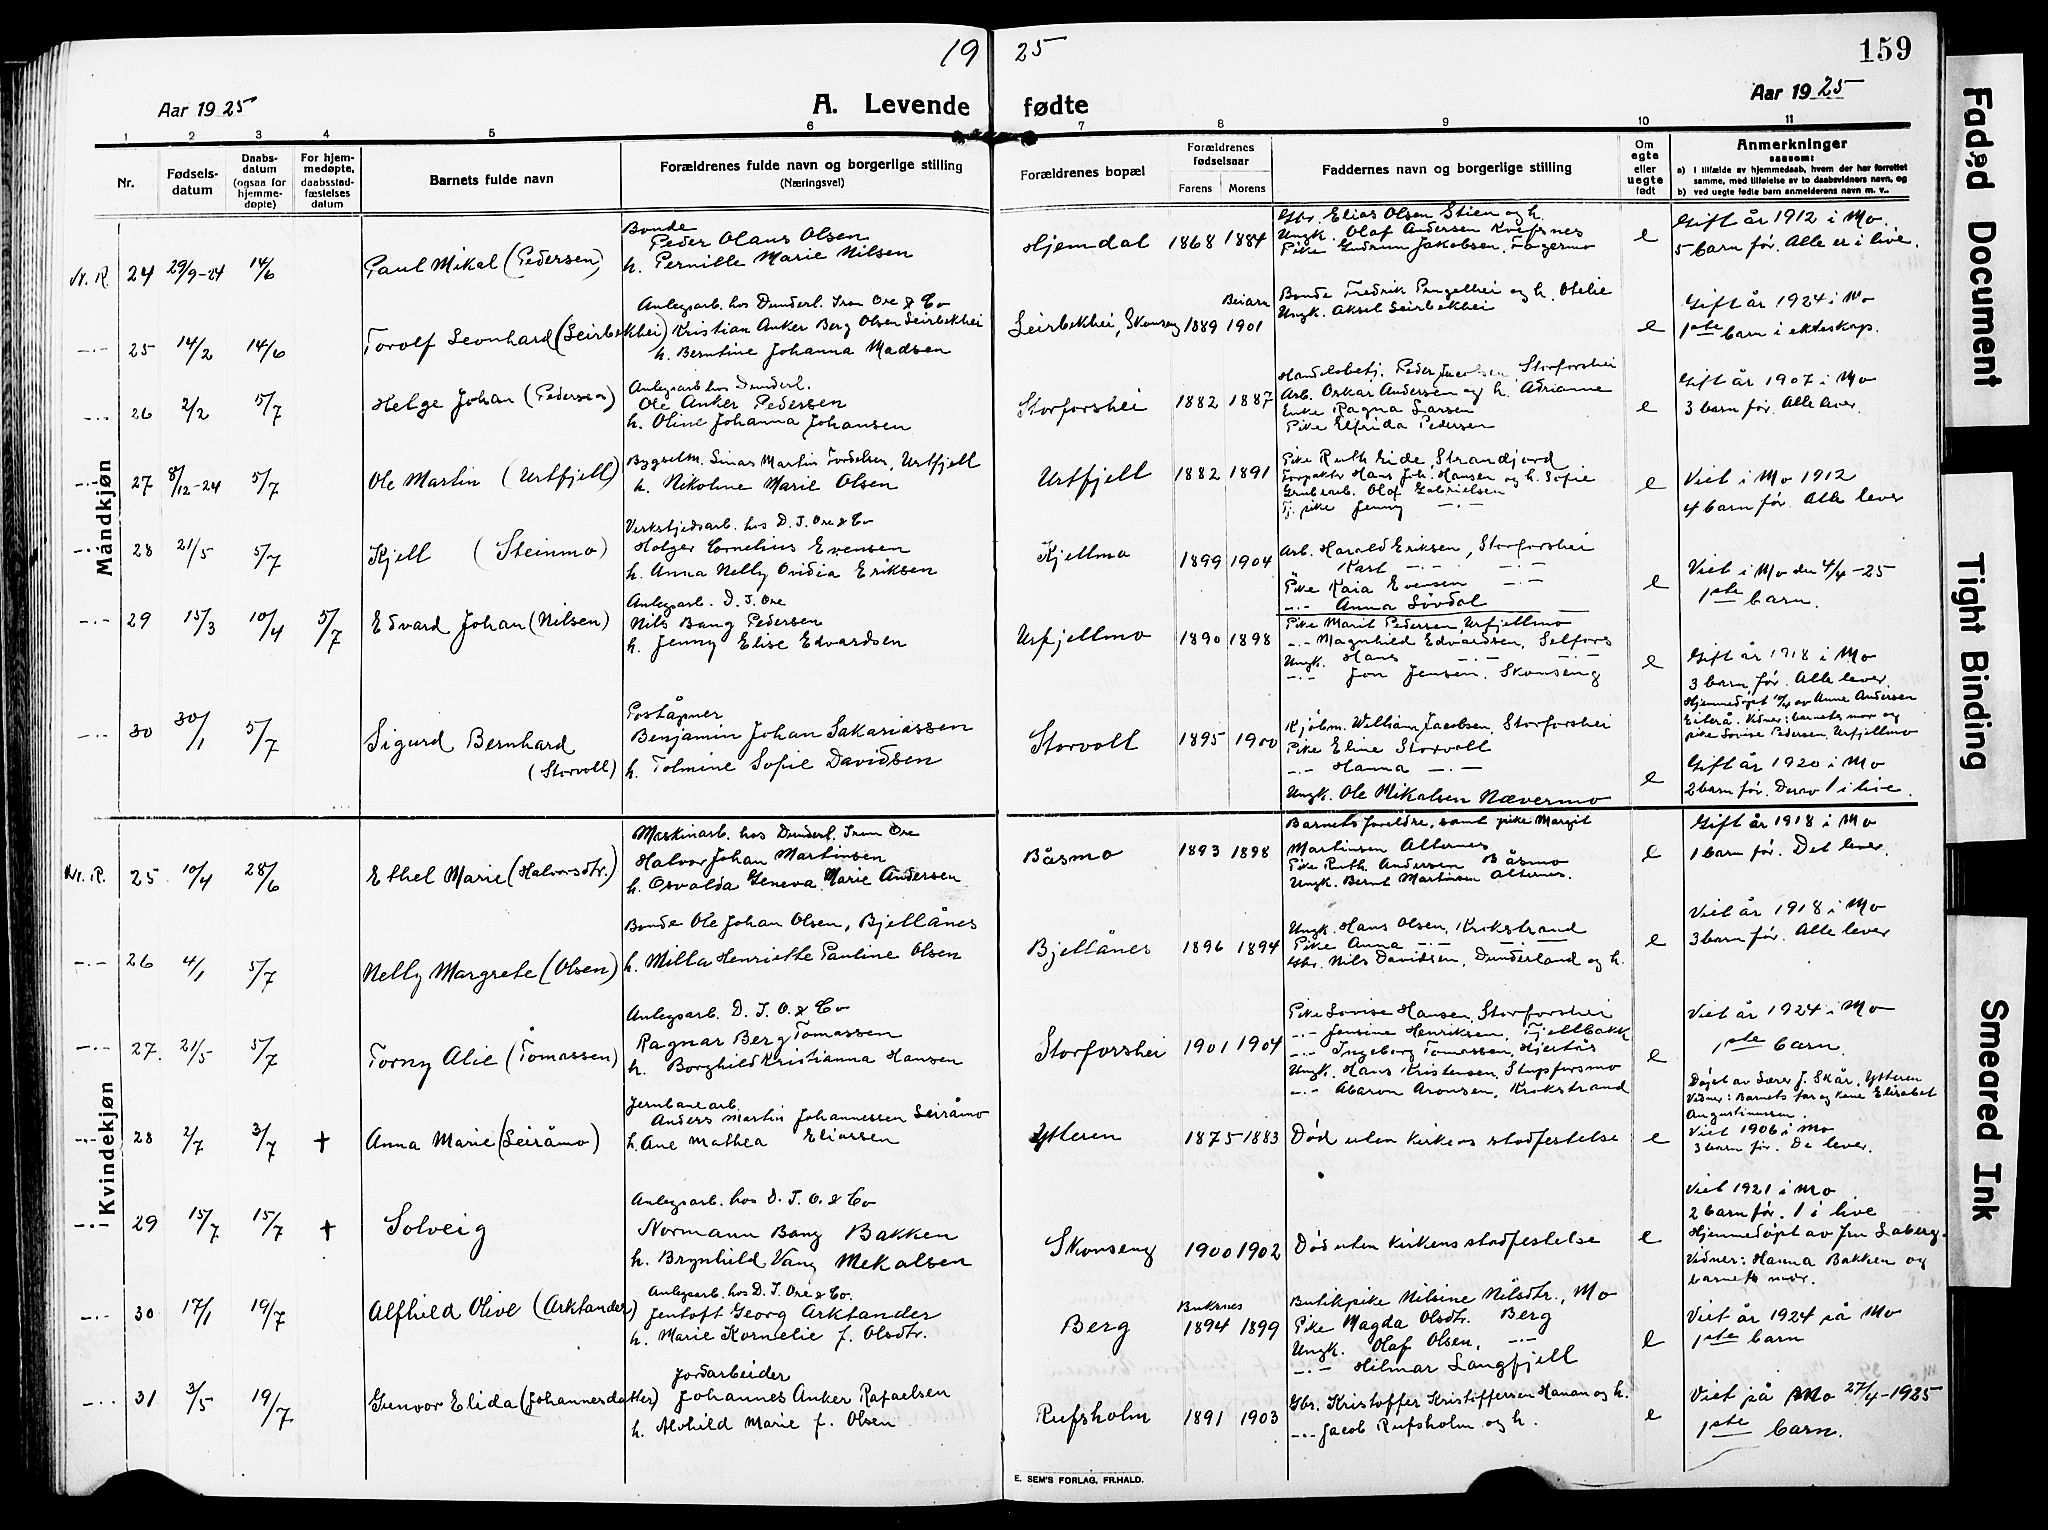 19 25
159
Aar 1925
A. Levende fødte
Aar 1925
1 2 3 4 5 6 7 8 9 10 11
Nr.
Fødsels-
datum
Daabs-
datum
(ogsaa for
hjemme-
døpte)
For hjem-
medøpte,
daabsstad-
fæstelses
datum
Barnets fulde navn
Forældrenes fulde navn og borgerlige stilling
(Næringsvei)
Forældrenes bopæl
Forældrenes
fødselsaar
Farens Morens
Faddernes navn og borgerlige stilling
Om
egte
eller
uegte
født
Anmerkninger
saasom:
a) I tilfælde av hjemmedaab, hvem der har forrettet
samme, med tilføielse av to daabsvidners navn, og
b) ved uegte fødte barn anmelderens navn m. v..
Mandkjøn
N. R. 24 29/9-24 14/6
Paul Mikal (Pedersen)
Bonde
Peder Olaus Olsen
h. Pernille Marie Nilsen
Hjemdal 1868 1884
Gbr. Elias Olsen Stien og h.
Ungk. Olaf Andersen
Pike Gudrun Jakobsen, Fagermo
e
Gift år 1912 i Mo.
5 barn før. Alle er i live.
-·- 25 14/2 14/6
Torolf Leonhard (Leirbekhei)
Anlegsarb. hos Dunderl. Iron Ore & Co
Kristian Anker Berg Olsen Leirbekhei
h. Berntine Johanna Madsen
Leirbekhei, Skonseng 1889 Beiarn 1901
Bonde Fredrik Pengelhei og h. Otelie
Ungk. Aksel Leirbekhei
e
Gift år 1924 i Mo
1ste barn i ekteskap.
-·- 26 2/2 5/7
Helge Johan (Pedersen)
Anlegsarb hos Dunderl.
Ole Anker Pedersen
h. Oline Johanna Johansen
Storforshei 1882 1887
Handelsbetj. Peder Jacobsen Storforshei
Arb. Oskar Andersen og h. Adrianne
Enke Ragna Larsen
Pike Elfrida Pedersen
e
Gift år 1907 i Mo
3 barn før. Alle lever.
-·- 27 8/12-24 5/7
Ole Martin (Urtfjell)
Bygselm. Linas Martin Tordelsen, Urtfjell
h. Nikoline Marie Olsen
Urtfjell 1882 1891
Pike Ruth Eide, Strandjord
Forpakter Hans Joh. Hansen og h. Sofie
Grubearb. Olaf Gabrielsen
Tj. pike Jenny -·-
e
Viet i Mo 1912
4 barn før. Alle lever
-·- 28 21/5 5/7
Kjell (Steinmo)
Verkstedsarb. hos D. I. Ore & Co
Holger Cornelius Evensen
h. Anna Nelly Ovidia Eriksen
Kjellmo 1899 1904
Arb. Harald Eriksen, Storforshei
Karl -·- -·-
Pike Kaia Evensen -·-
-·- Anna Lövdal
e
Viet i Mo den 4/4-25
1ste barn.
-·- 29 15/3 10/4 5/7
Edvard Johan (Nilsen)
Anlegsarb. D. I. Ore
Nils Bang Pedersen
h. Jenny Elise Edvardsen
Urfjellmo 1890 1898
Pike Marit Pedersen, Urfjellmo
-·- Magnhild Edvardsen, Selfors
Ungk. Hans -·- -·-
-·- Jon Jensen, Skonseng
e
Gift år 1918 i Mo
3 barn før. Alle lever.
Hjemmedøpt 10/4 av Anne Andersen
Eiterå. Vidner: barnets mor og
pike Lovise Pedersen, Urfjellmo
-·- 30 30/1 5/7
Sigurd Bernhard
(Storvoll)
Poståpner
Benjamin Johan Sakariassen
h. Tolmine Sofie Davidsen
Storvoll 1895 1900
Kjøbm. William Jacobsen, Storforshei
Pike Eline Storvoll
-·- Hanna -·-
Ungk. Ole Mikalsen Nævermo
e
Gift år 1920 i Mo
2 barn før. Derav 1 i live.
Kvindekjøn
N. R. 25 10/4 28/6
Ethel Marie (Halvorsdtr.)
Maskinarb. hos Dunderl. Iron Ore
Halvor Johan Martinsen
h. Osvalda Geneva Marie Andersen
Båsmo 1893 1898
Barnets foreldre, samt pike Margit
Martinsen Alternes
Pike Ruth Andersen Båsmo
Ungk. Bernt Martinsen Alternes.
e
Gift år 1918 i Mo
1 barn før. Det lever.
-·- 26 4/1 5/7
Nelly Margrete (Olsen)
Bonde Ole Johan Olsen, Bjellånes
h. Milla Henriette Pauline Olsen
Bjellånes 1896 1894
Ungk. Hans Olsen, Krokstrand
Pike Anna -·- -·-
Gbr. Nils Davidsen, Dunderland og h.
e
Viet år 1918 i Mo
3 barn før. Alle lever
-·- 27. 21/5 5/7
Torny Alie (Tomassen)
Anlegsarb. D. I. O. & Co
Ragnar Berg Tomassen
h. Borghild Kristianna Hansen
Storforshei 1901 1904
Pike Lovise Hansen, Storforshei
-·- Jensine Henriksen, Fjellbakk
-·- Ingeborg Tomassen, Hjertås
Ungk. Hans Kristensen, Stupforsmo
-·- Abaron Aronsen, Krokstrand
e
Viet år 1924 i Mo
1ste barn.
-·- 28 2/7 3/7 +
Anna Marie (Leiråmo)
Jernbanearb.
Anders Martin Johannessen Leiråmo
h. Ane Mathea Eliassen
Ytteren 1875 1883
Død uten kirkens stadfestelse
e
Døpt av Lærer J. Skår, Ytteren
Vidner: Barnets far og kone Elisabet
Augustinussen.
Viet 1906 i Mo
3 barn før. De lever.
-·- 29 15/7 15/7 +
Solveig
Anlegsarb. hos D. I. O. & Co
Normann Bang Bakken
h. Brynhild Vang Mekalsen
Skonseng 1900 1902
Død uten kirkens stadfestelse
e
Viet 1921 i Mo
2 barn før. 1 i live
Hjemmedøpt av Fru Laberg.
Vidner: Hanna Bakken og
barnets mor.
-·- 30 17/1 19/7
Alfhild Olive (Arktander)
Anlegsarb. hos D. I. Ore & Co.
Jentoft Georg Arktander
h. Marie Kornelie f. Olsdtr.
Berg Buksnes 1894 1899
Butikpike Nilsine Nilsdtr., Mo
Pike Magda Olsdtr. Berg
Ungk. Olaf Olsen, -·-
-·- Hilmar Langfjell
e
Viet år 1924 på Mo
1ste barn
-·- 31 3/5 19/7
Gunvor Elida (Johannesdatter)
Jordarbeider
Johannes Anker Rafaelsen
h. Alvhild Marie f. Olsen
Rufsholm 1891 1903
Gbr. Kristoffer Kristoffersen Hauan og h.
-·- Jacob Rufsholm og h.
e
Viet på Mo 27/4-1925
1ste barn.
E. SEM'S FORLAG, FR.HALD.
Faded Document
Tight Binding
Smeared Ink